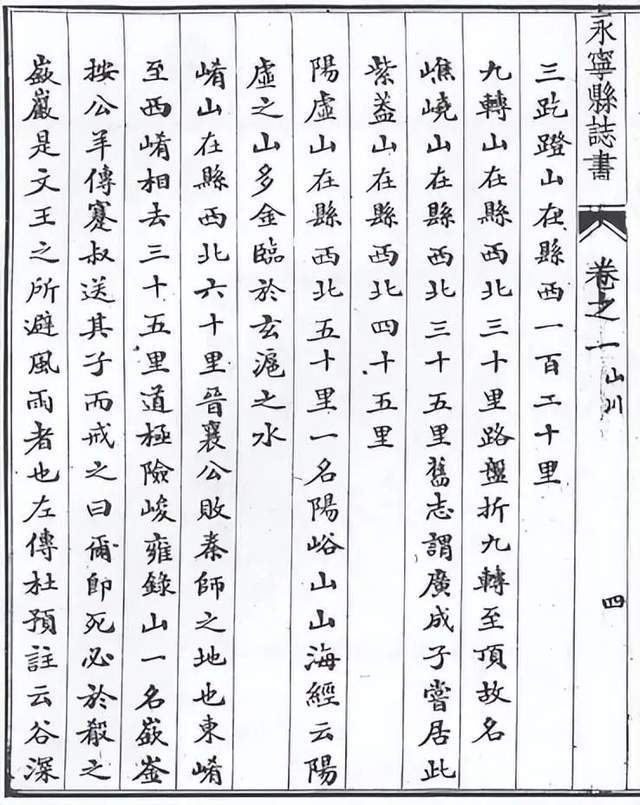 永寧縣誌書 卷之一 山川 四
三趷蹬山在縣西一百二十里
九轉山在縣西北三十里路盤折九轉至頂故名
嶕嶢山在縣西北三十五里舊志謂廣成子嘗居此
紫蓋山在縣西北四十五里
陽虛山在縣西北五十里一名陽峪山山海經云陽
虛之山多金臨於玄滬之水
崤山在縣西北六十里晉襄公敗秦師之地也東崤
至西崤相去三十五里道極險峻雍錄山一名嶔崟
按公羊傳蹇叔送其子而戒之曰爾即死必於殽之
嶔巖是文王之所避風雨者也左傳杜預註云谷深